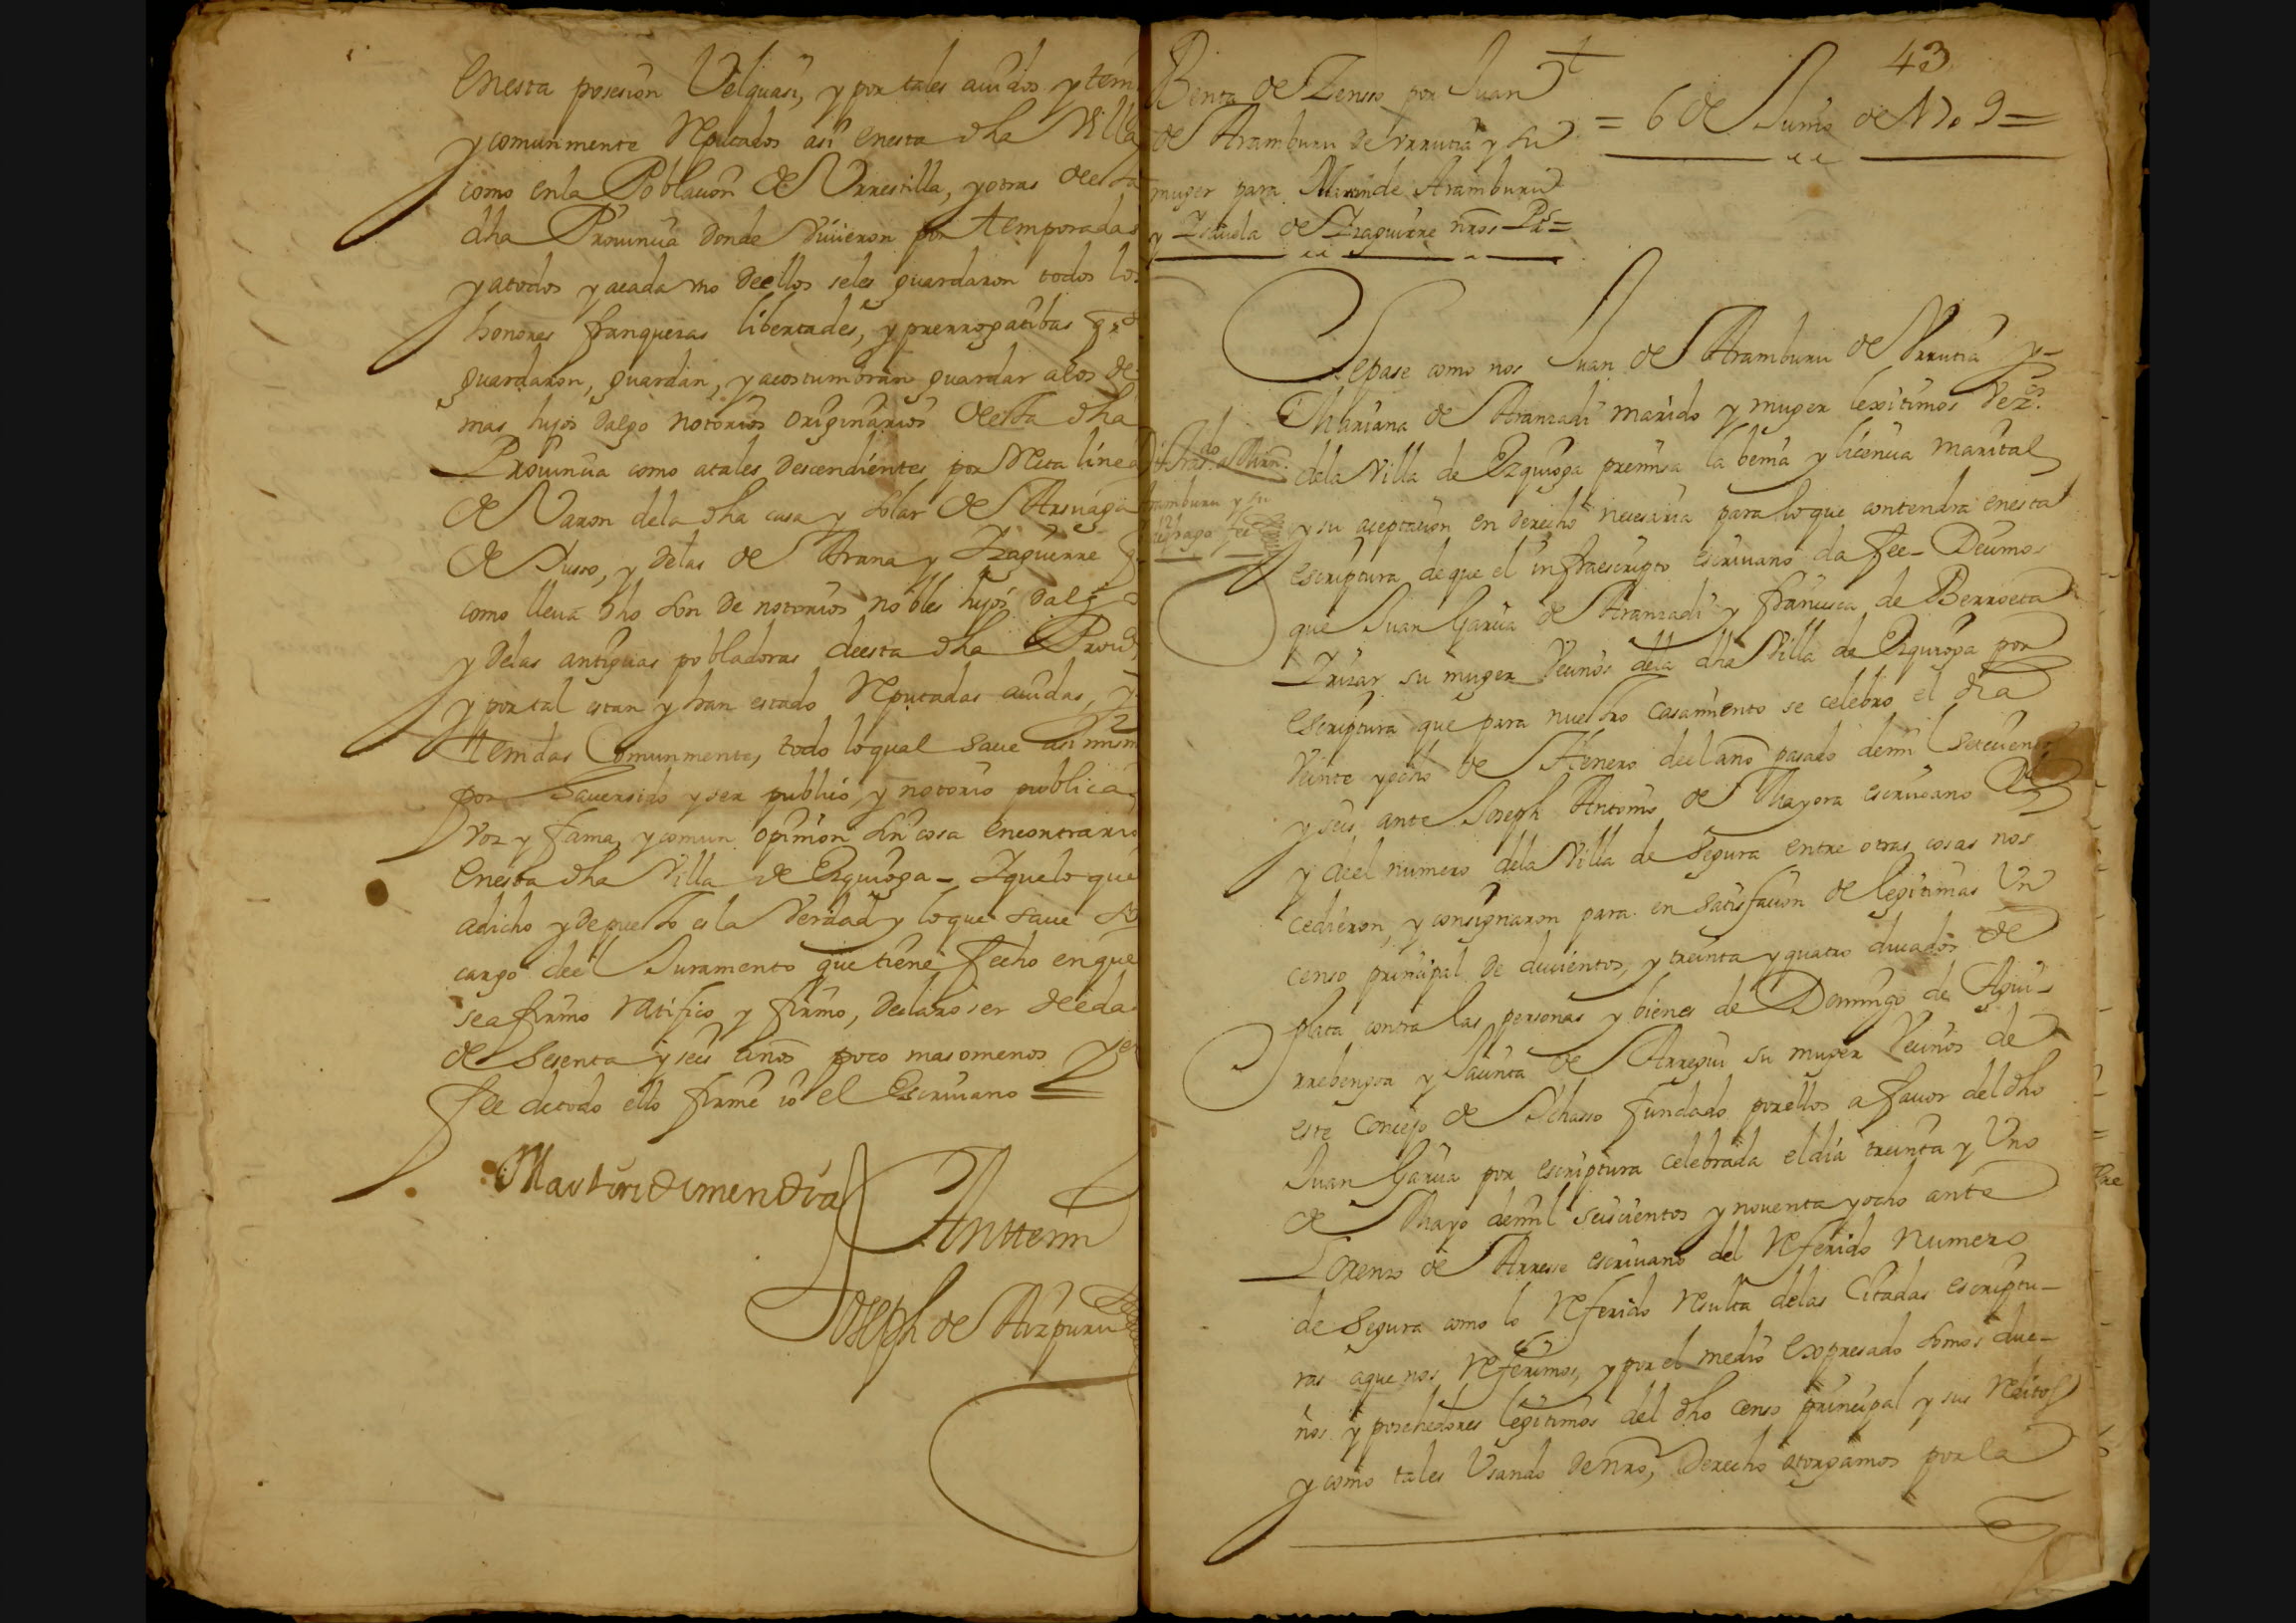 Enesta posesion Velquasi, y por tales auidos y tem
y comunmente Reputados asi enesta dha Villa
como enla Poblacion de Vrrestilla, y otras deesta
dha Prouincia donde viuieron por temporadas
y atodos y acada vno deellos seles guardaron todos los
honores franquezas libertades, y prerrogatibas q.e
guardaron, guardan, y acostumbran guardar alos de
mas hijos dalgo notorios originarios deesta dha
Prouincia como atales descendientes por Recta linea
de Varon dela dha casa y solar de Arsuaga
de Susso, y delas de Arana y Izaguirre q
como lleua dho son de notorios nobles hijos dalg
y delas antiguas pobladoras deesta dha Prouia
y por tal estan y han estado Reputadas auidas, y
tenidas Comunmente, todo loqual saue asi mism
por hauersido y ser publico y notorio publica
voz y fama, y comun opinion sin cosa encontrario
Enesta dha Villa de Ezquioga - Iquelo que
adicho y depuesto es la Verdad y loque saue so
cargo deel Juramento que tiene fecho enque
seafirmo Ratifico y firmo, declaro ser deeda
de sesenta y seis años poco masomenos y en
fee detodo ello firme io el Escriuano
Martin de mendia
Anttemi
Joseph de Aizpuru
43
Benta de Zenso por Juan
de Aramburu de Vrrutia y su
muger para Martin de Aramburu
y Ysauela de Izaguirre nros P.s =
= 6 de Junio de 1709 =
Sepase como nos Juan de Aramburu de Vrrutia y
Mariana de Aranzadi marido y muger lexitimos Vez.os
dela Villa de Ezquioga premisa la benia y licencia marital
y su aceptacion en derecho necesaria para loque contendra enesta
escriptura deque el infraescripto escriuano da fee - Decimos
que Juan Garcia de Aranzadi y francisca de Berroeta
Irizar su muger Vecinos dela dha Villa de Ezquioga por
escriptura que para nuestro casamiento se celebro el dia
Veinte yocho de Henero deelaño pasado demil setecientos
y seis ante Joseph Antonio de Mayora escriuano Rl
y deel numero dela Villa de Segura entre otras cosas nos
cedieron, y consignaron para en satisfacion de legitimas Vn
censo principal de ducientos, y treinta y quatro ducados de
plata contra las personas y bienes de Domingo de Agui-
rrebengoa y Jacinta de Arregui su muger Vecinos de
este Concejo de Ichasso fundado porellos a fauor del dho
Juan Garcia por escriptura celebrada eldia treinta y Vno
de Mayo demil seiscientos y nouenta yocho ante
Lorenzo de Arresse escriuano del Referido Numero
de Segura como lo Referido Resulta delas Citadas escriptu-
ras aque nos Referimos, y por el medio Expresado somos due-
ños y posehedores legitimos del dho censo principal y sus Reditos
y como tales Vsando de nro, derecho otorgamos por la